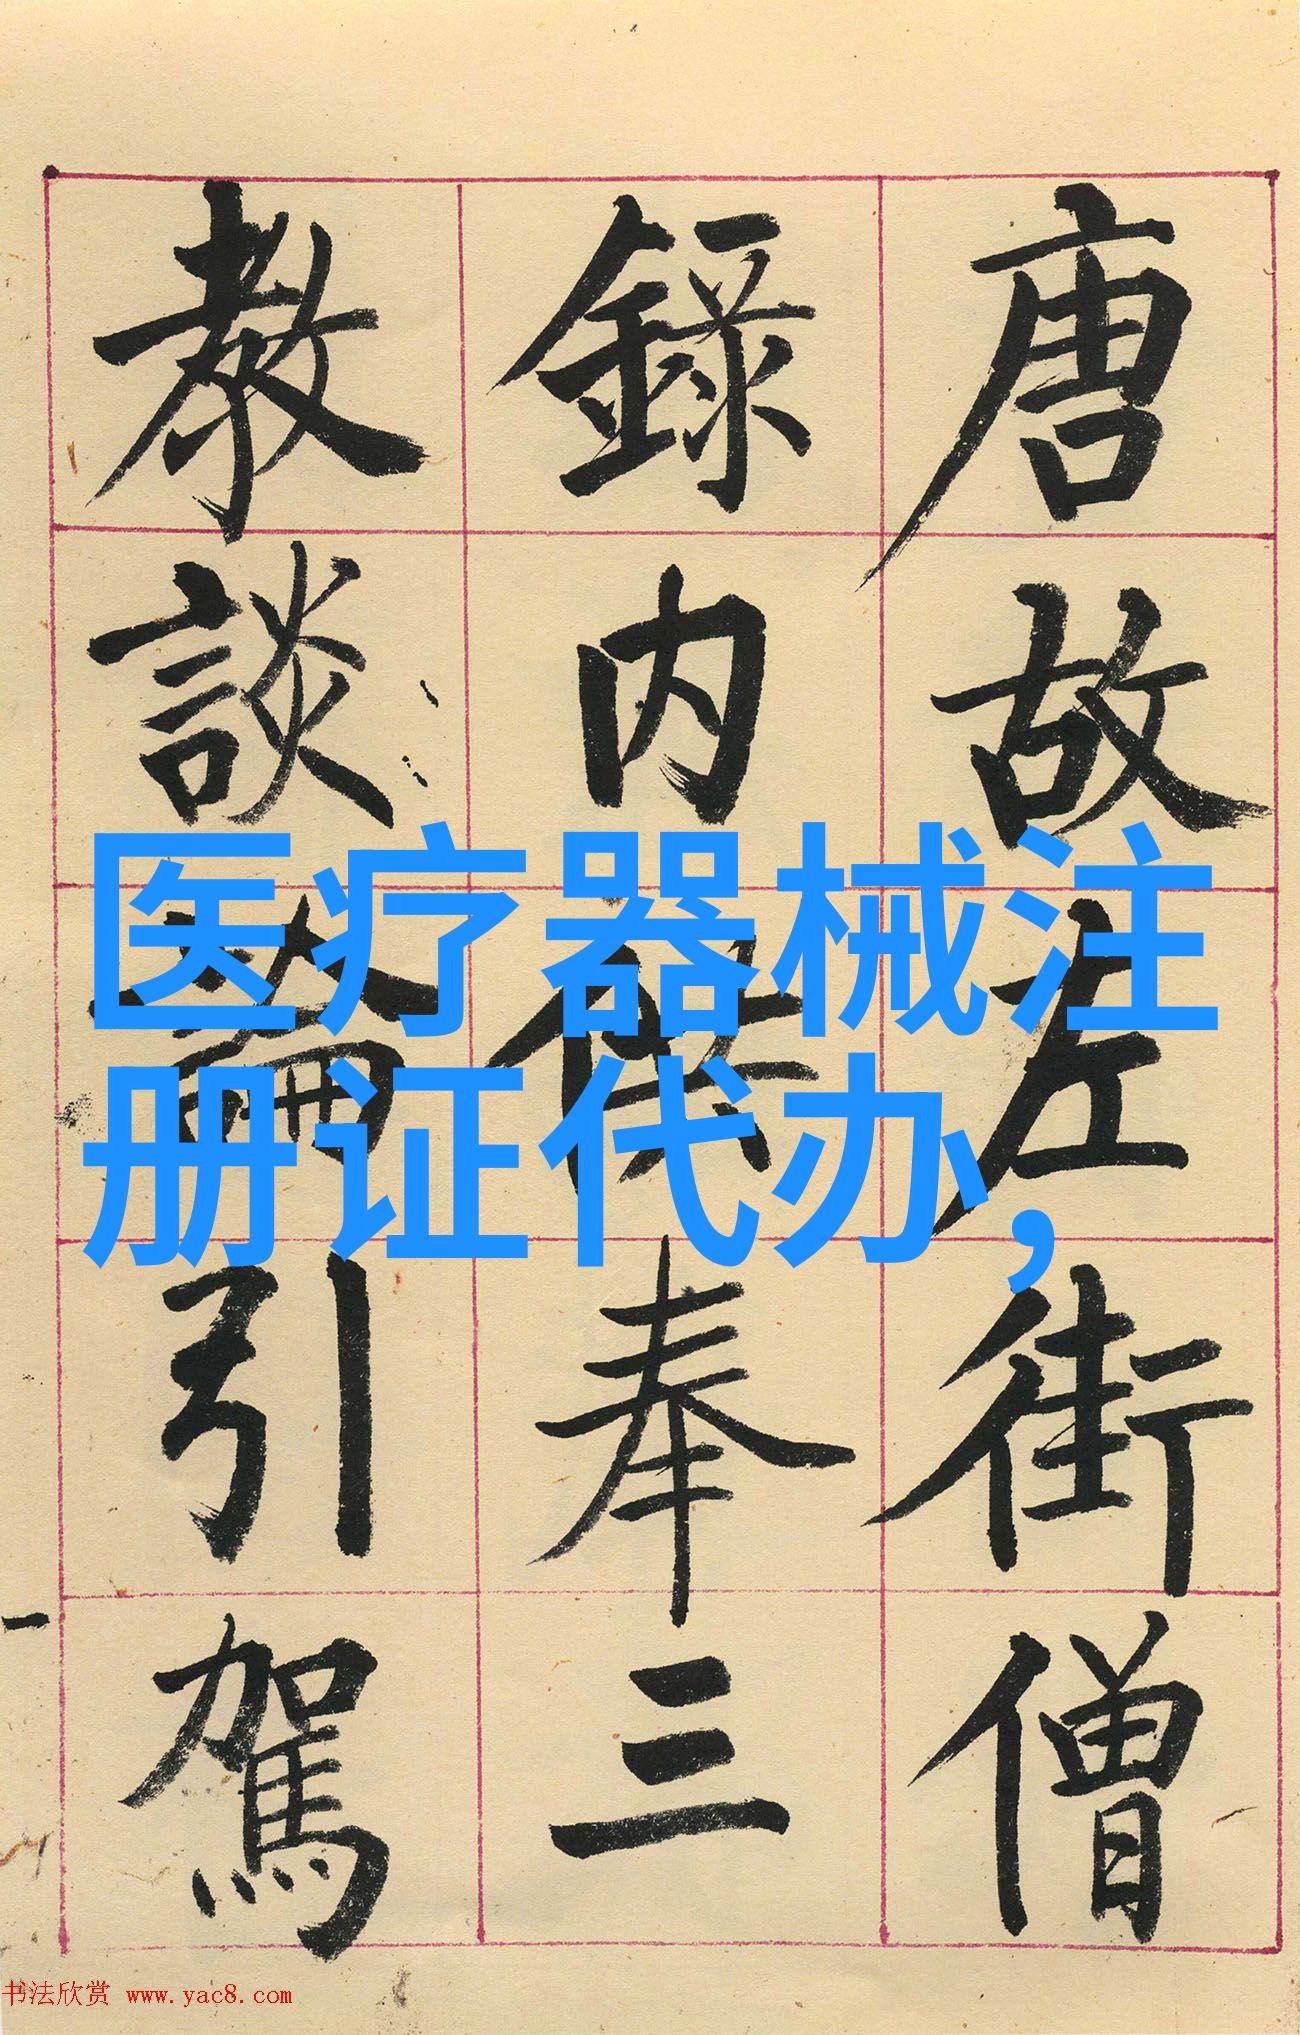 唐故左街僧
錄内供奉三
教談論引駕
医疗器械注
册证代办，
书法欣赏 www.yac8.com